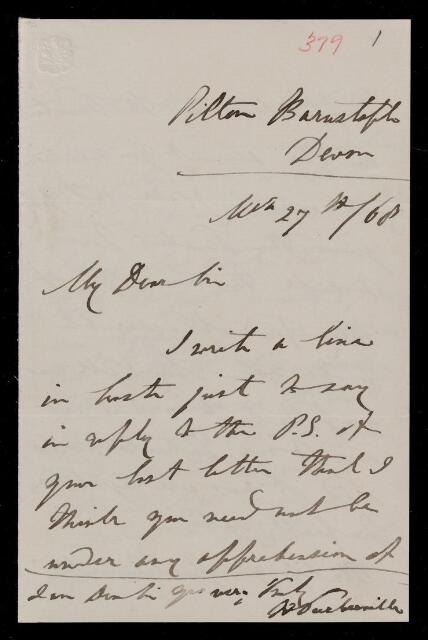 379 1
Pilton Barnstaple
Devon
Mch 27th/68
My Dear Sir
I write a line
in haste just to say
in reply to the P.S. of
your last letter that I
think you need not be
under any apprehension of
I am Dear Sir yrs very truly
W Turbervill